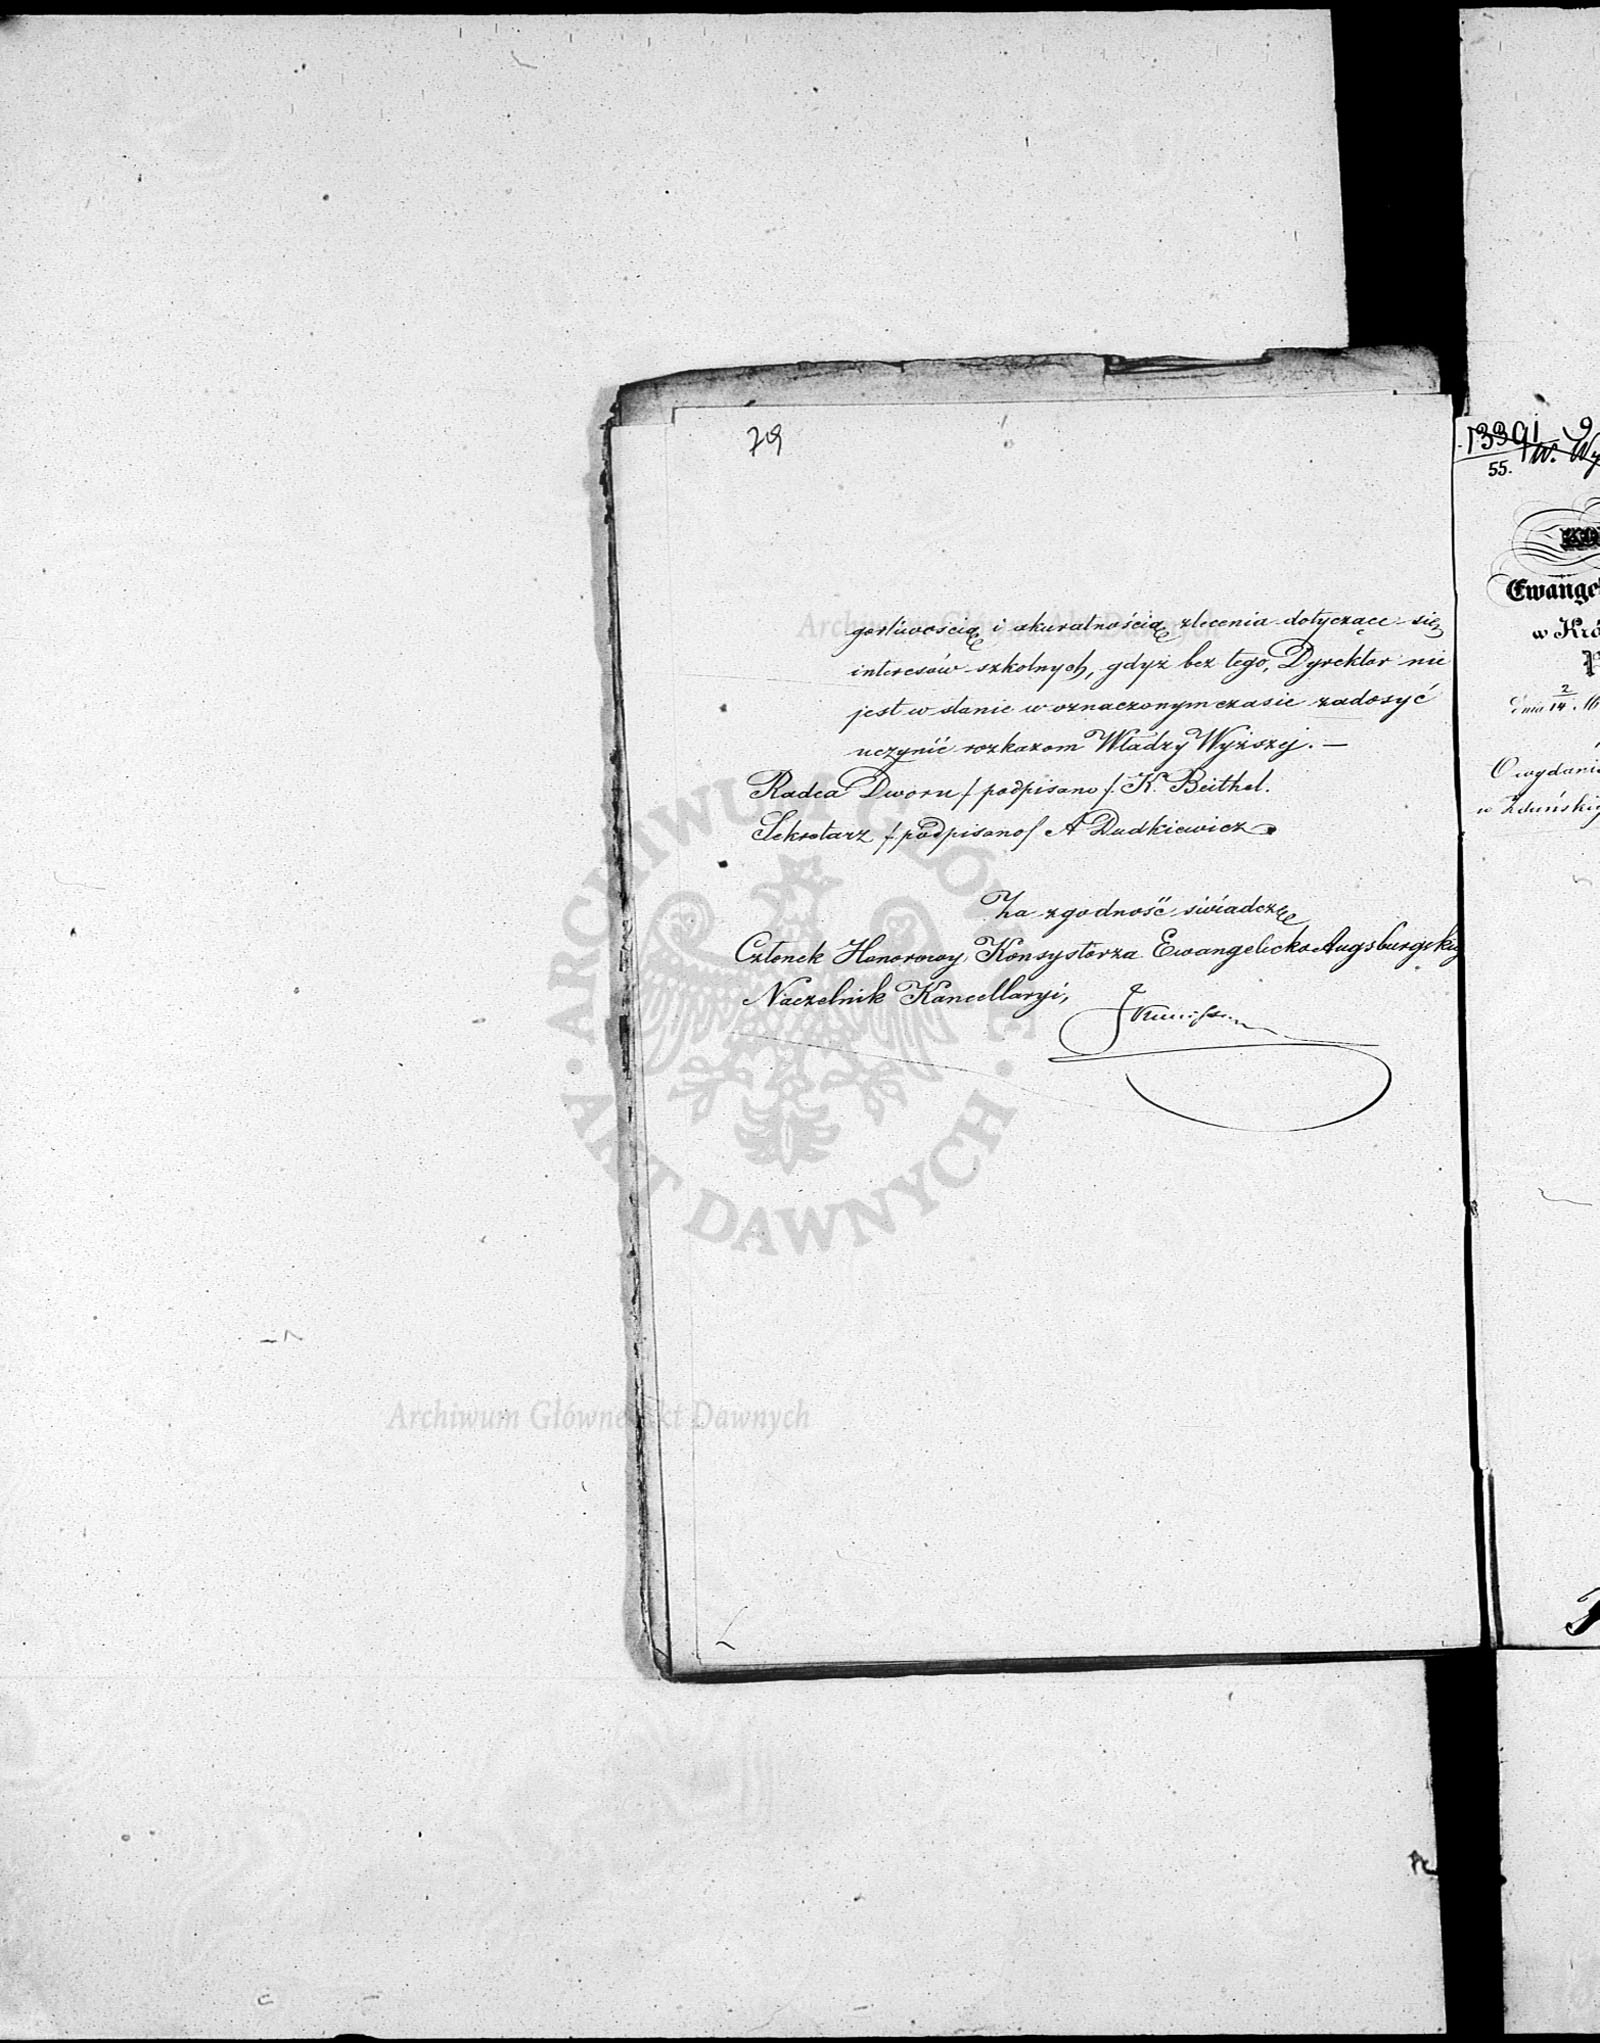 79
gorliwością i akuratnością zlecenia dotyczące się
interesów szkolnych, gdyż bez tego, Dyrektor nie
jest w stanie w oznaczonym czasie zadosyć
uczynić rozkazom Władzy Wyższej. —
Radca Dworu /podpisano/ K. Beithel.
Sekretarz /podpisano/ A Dudkiewicz
Za zgodność świadczę
Członek Honorowy Konsystorza Ewangelicko Augsburgskiego
Naczelnik Kancellaryi,
13391
55.
Ewange
w Kró
dnia 2/14
O wydanie
w Zduńskiej
Archiwum Główne Akt Dawnych
ARCHIWUM GŁÓWNE · AKT DAWNYCH ·
Archiwum Główne Akt Dawnych